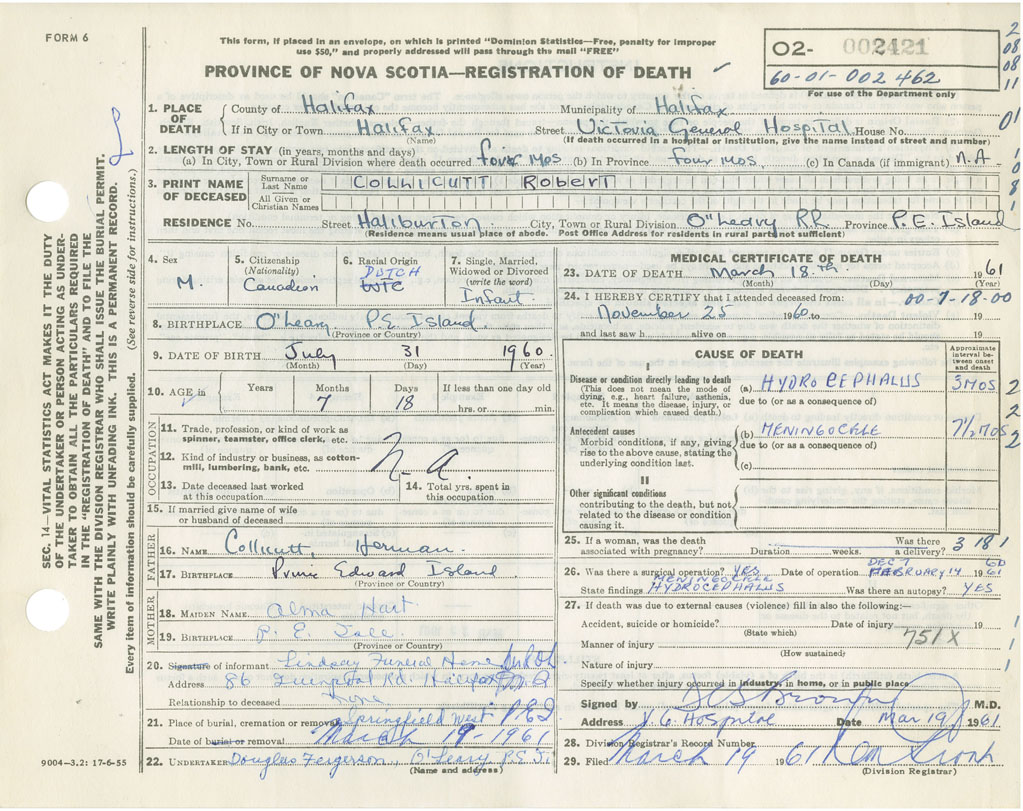 FORM 6
This form, if placed in an envelope, on which is printed "Dominion Statistics—Free, penalty for improper
use $50," and properly addressed will pass through the mail "FREE"
PROVINCE OF NOVA SCOTIA—REGISTRATION OF DEATH
02- 002421
60-01-002 462
For use of the Department only
2
08
08
11
01
1. PLACE OF DEATH
County of Halifax Municipality of Halifax
If in City or Town Halifax Street Victoria General Hospital House No.
(Name) (If death occurred in a hospital or institution, give the name instead of street and number)
2. LENGTH OF STAY (in years, months and days)
(a) In City, Town or Rural Division where death occurred four mos (b) In Province four mos. (c) In Canada (if immigrant) N.A
3. PRINT NAME OF DECEASED
Surname or Last Name COLLICUTT Robert
All Given or Christian Names
RESIDENCE No. Street Haliburton City, Town or Rural Division O"Leary RR Province P.E. Island
(Residence means usual place of abode. Post Office Address for residents in rural parts not sufficient)
4. Sex M.
5. Citizenship (Nationality) Canadian
6. Racial Origin DUTCH
7. Single, Married, Widowed or Divorced (write the word) Infant
8. BIRTHPLACE O"Leary P.E Island
(Province or Country)
9. DATE OF BIRTH July 31 1960
(Month) (Day) (Year)
10. AGE in Years Months 7 Days 18 If less than one day old hrs. or min.
OCCUPATION
11. Trade, profession, or kind of work as spinner, teamster, office clerk, etc.
12. Kind of industry or business, as cotton-mill, lumbering, bank, etc.
N-A.
13. Date deceased last worked at this occupation
14. Total yrs. spent in this occupation
15. If married give name of wife or husband of deceased
FATHER
16. NAME Collicutt, Herman.
17. BIRTHPLACE Prince Edward Island
(Province or Country)
MOTHER
18. MAIDEN NAME Alma Hart
19. BIRTHPLACE P. E. Isle.
(Province or Country)
20. Signature of informant Lindsay Funeral Home
Address 86 Rd. Halifax
Relationship to deceased None
21. Place of burial, cremation or removal Springfield West P.E.I
Date of burial or removal March 19-1961
22. UNDERTAKER Douglas Fergerson, O'Leary P.E.I.
(Name and address)
9004-3.2: 17-6-55
MEDICAL CERTIFICATE OF DEATH
23. DATE OF DEATH March 18.th 1961
(Month) (Day) (Year)
24. I HEREBY CERTIFY that I attended deceased from: 00-7-18-00
November 25 1960 to 19
and last saw h alive on 19
CAUSE OF DEATH
Approximate interval between onset and death
I
Disease or condition directly leading to death
(This does not mean the mode of dying, e.g., heart failure, asthenia, etc. It means the disease, injury, or complication which caused death.)
(a) HYDROCEPHALUS 3 MOS
due to (or as a consequence of)
Antecedent causes
Morbid conditions, if any, giving rise to the above cause, stating the underlying condition last.
(b) MENINGOCELE 7½ MOS
due to (or as a consequence of)
(c)
II
Other significant conditions
contributing to the death, but not related to the disease or condition causing it.
25. If a woman, was the death associated with pregnancy? Duration weeks. Was there a delivery? 3 18 1
26. Was there a surgical operation? YES Date of operation DEC 7 60 FEBRUARY 14 1961
State findings MENINGOCELE HYDROCEPHALUS Was there an autopsy? YES
27. If death was due to external causes (violence) fill in also the following:—
Accident, suicide or homicide? Date of injury 19
(State which)
751X
Manner of injury
(How sustained)
Nature of injury
Specify whether injury occurred in industry, in home, or in public place
Signed by M.D.
Address V.G. Hospital Date Mar 19 1961.
28. Division Registrar's Record Number
29. Filed March 19 1961
(Division Registrar)
SEC. 14—VITAL STATISTICS ACT MAKES IT THE DUTY
OF THE UNDERTAKER OR PERSON ACTING AS UNDER-
TAKER TO OBTAIN ALL THE PARTICULARS REQUIRED
IN THE "REGISTRATION OF DEATH" AND TO FILE THE
SAME WITH THE DIVISION REGISTRAR WHO SHALL ISSUE THE BURIAL PERMIT.
WRITE PLAINLY WITH UNFADING INK. THIS IS A PERMANENT RECORD.
Every item of information should be carefully supplied. (See reverse side for instructions.)